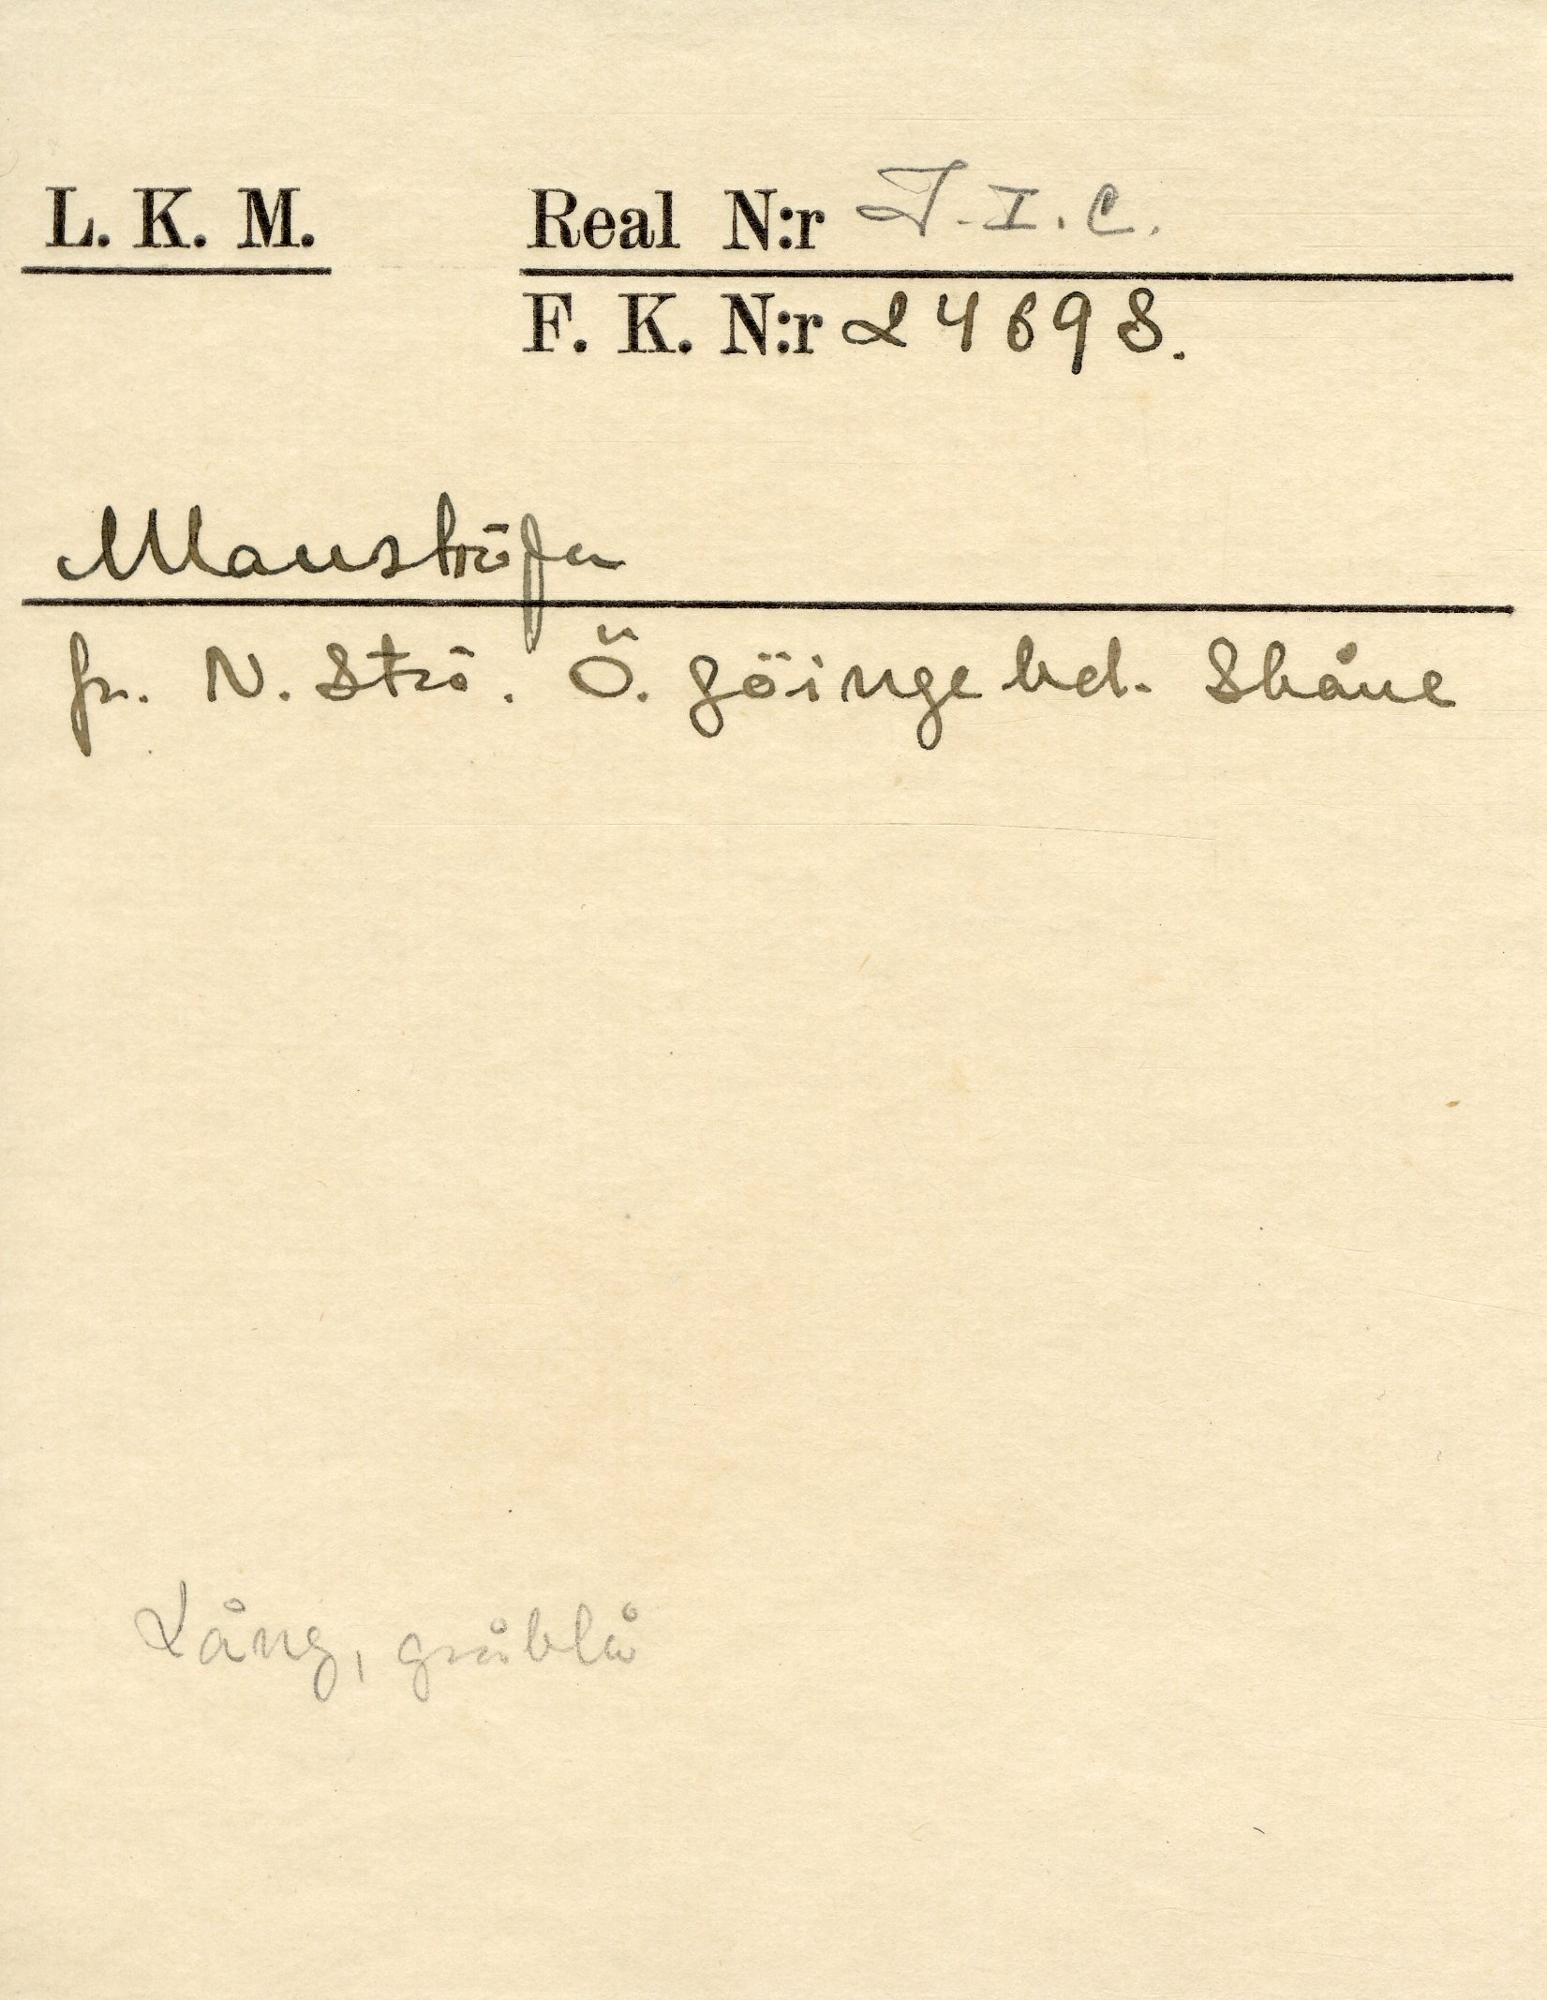 L. K. M. Real N:r T.I.C.
F. K. N:r 24698.
Manströja
fr. N. Strö. Ö. Göinge hd. Skåne
Lång, gråblå